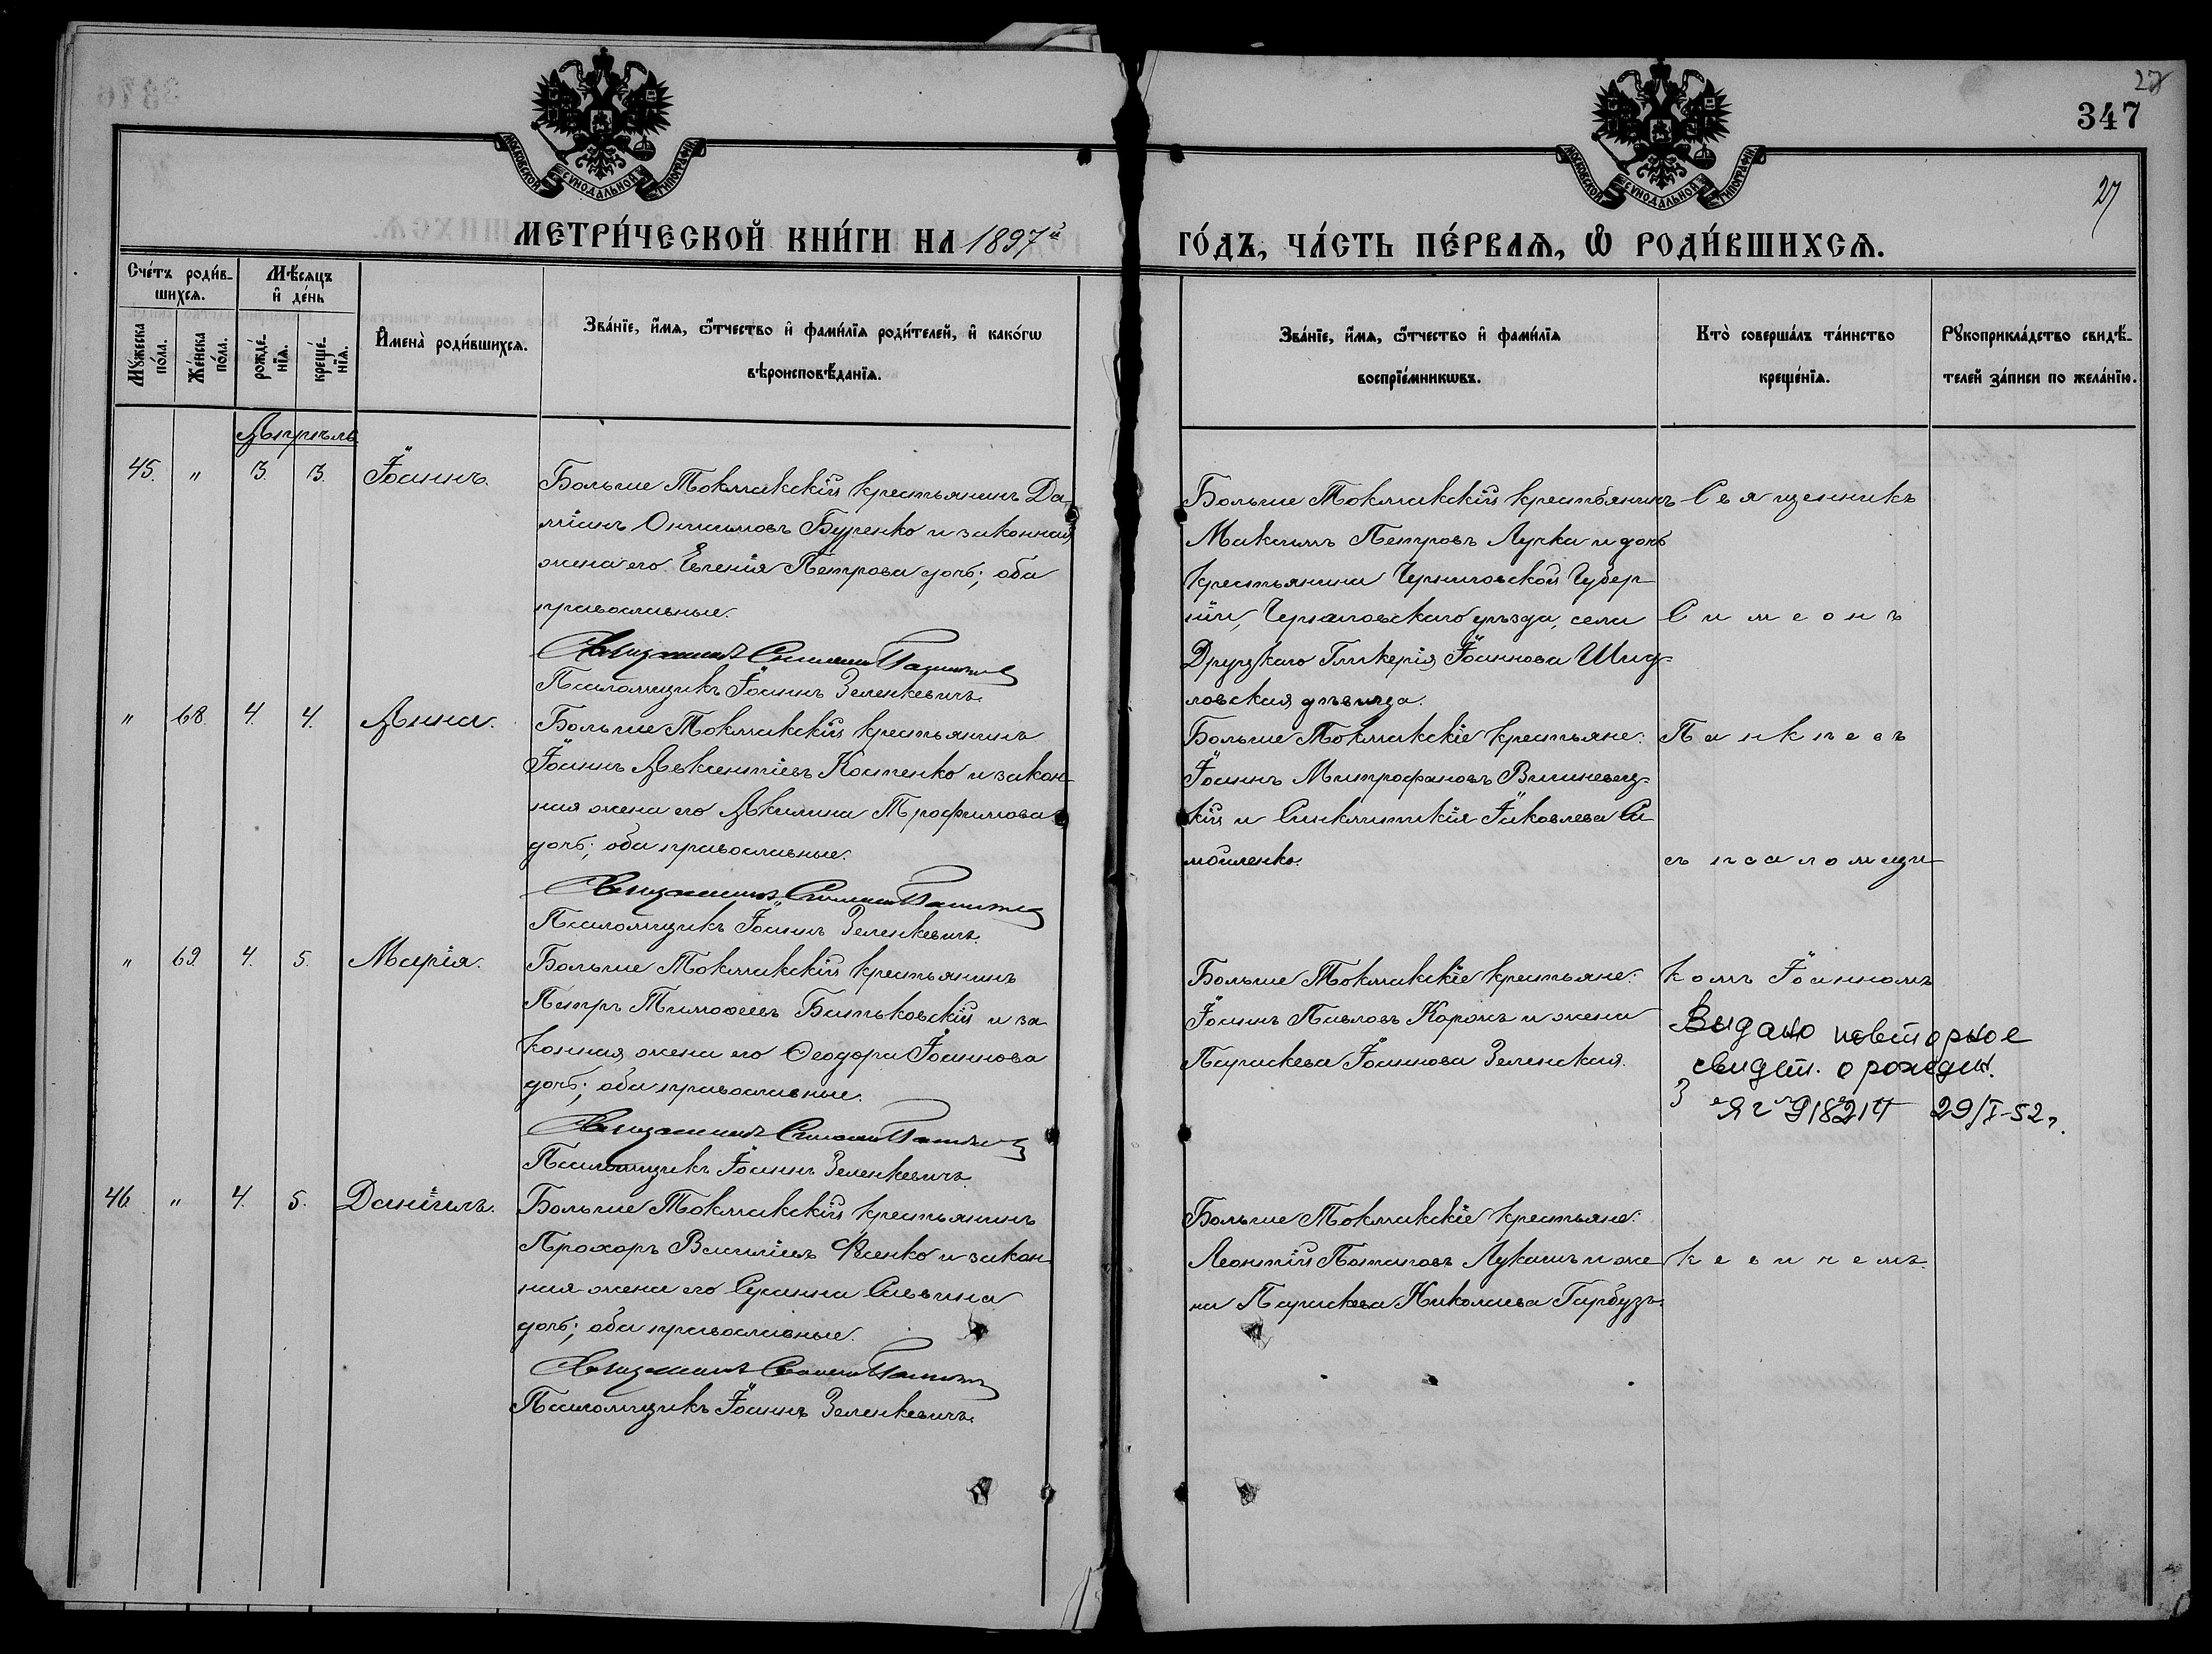 27
347
27
МОСКОВСКОЙ СѴНОДАЛЬНОЙ ТИПОГРАФІИ
МОСКОВСКОЙ СѴНОДАЛЬНОЙ ТИПОГРАФІИ
МЕТРИ́ЧЕСКОЙ КНИ́ГИ НА 1897й
ГО́ДЪ, ЧА́СТЬ ПЕ́РВАѦ, Ѿ РОДИ́ВШИХСѦ.
Сче́тъ роди́в-
шихсѧ.
Мѣ́сѧцъ
и҆ де́нь
Мꙋ́жеска
по́ла.
Же́нска
по́ла.
рожде́-
нїѧ.
креще́-
нїѧ.
И҆мена̀ роди́вшихсѧ.
Зва́нїе, и҆́мѧ, ѻ҆́тчество и҆ фами́лїѧ роди́телей, и҆ како́гѡ
вѣроисповѣ́данїѧ.
Зва́нїе, и҆́мѧ, ѻ҆́тчество и҆ фами́лїѧ
воспрїе́мникѡвъ.
Кто̀ соверша́лъ та́инство
креще́нїѧ.
Рꙋкоприкла́дство свидѣ́-
телей за́писи по жела́нїю.
Апрѣль
45. " 3. 3. Іоаннъ.
Больше Токмакскій крестьянинъ Да-
міанъ Онисимовъ Буренко и законная
жена его Евгенія Петрова дочь; оба
православные.
Священникъ Симеонъ
Псаломщикъ Іоаннъ Зеленкевичъ.
Больше Токмакскій крестьянинъ
Максимъ Петровъ Лучка и дочь
крестьянина Черниговской Губер-
ніи, Черниговскаго уѣзда, села
Друцкаго Гликерія Іоаннова Шид-
ловская дѣвица.
Священникъ
Симеонъ
" 68. 4. 4. Анна.
Больше Токмакскій крестьянинъ
Іоаннъ Авксентіевъ Костенко и закон-
ная жена его Акилина Трофимова
дочь; оба православные.
Священникъ Симеонъ
Псаломщикъ Іоаннъ Зеленкевичъ.
Больше Токмакскіе крестьяне:
Іоаннъ Митрофановъ Вишневец-
кій и Синклитикія Іаковлева Са-
мойленко.
Панкѣевъ
съ псаломщи-
" 69. 4. 5. Марія.
Больше Токмакскій крестьянинъ
Петръ Тимофеевъ Битьковскій и за-
конная жена его Ѳеодора Іоаннова
дочь; оба православные.
Священникъ Симеонъ
Псаломщикъ Іоаннъ Зеленкевичъ.
Больше Токмакскіе крестьяне:
Іоаннъ Павловъ Коронъ и жена
Параскева Іоаннова Зеленская.
комъ Іоанномъ
Выдано повторное
свидет. о рожден.
29/I-52г.
46. " 4. 5. Даніилъ.
Больше Токмакскій крестьянинъ
Прохоръ Василіевъ Фесенко и закон-
ная жена его Сусанна Саввина
дочь; оба православные.
Священникъ Симеонъ
Псаломщикъ Іоаннъ Зеленкевичъ.
Больше Токмакскіе крестьяне:
Леонтій Потаповъ Лукашъ и же-
на Параскева Николаева Гарбузъ.
Зеленкевичемъ.